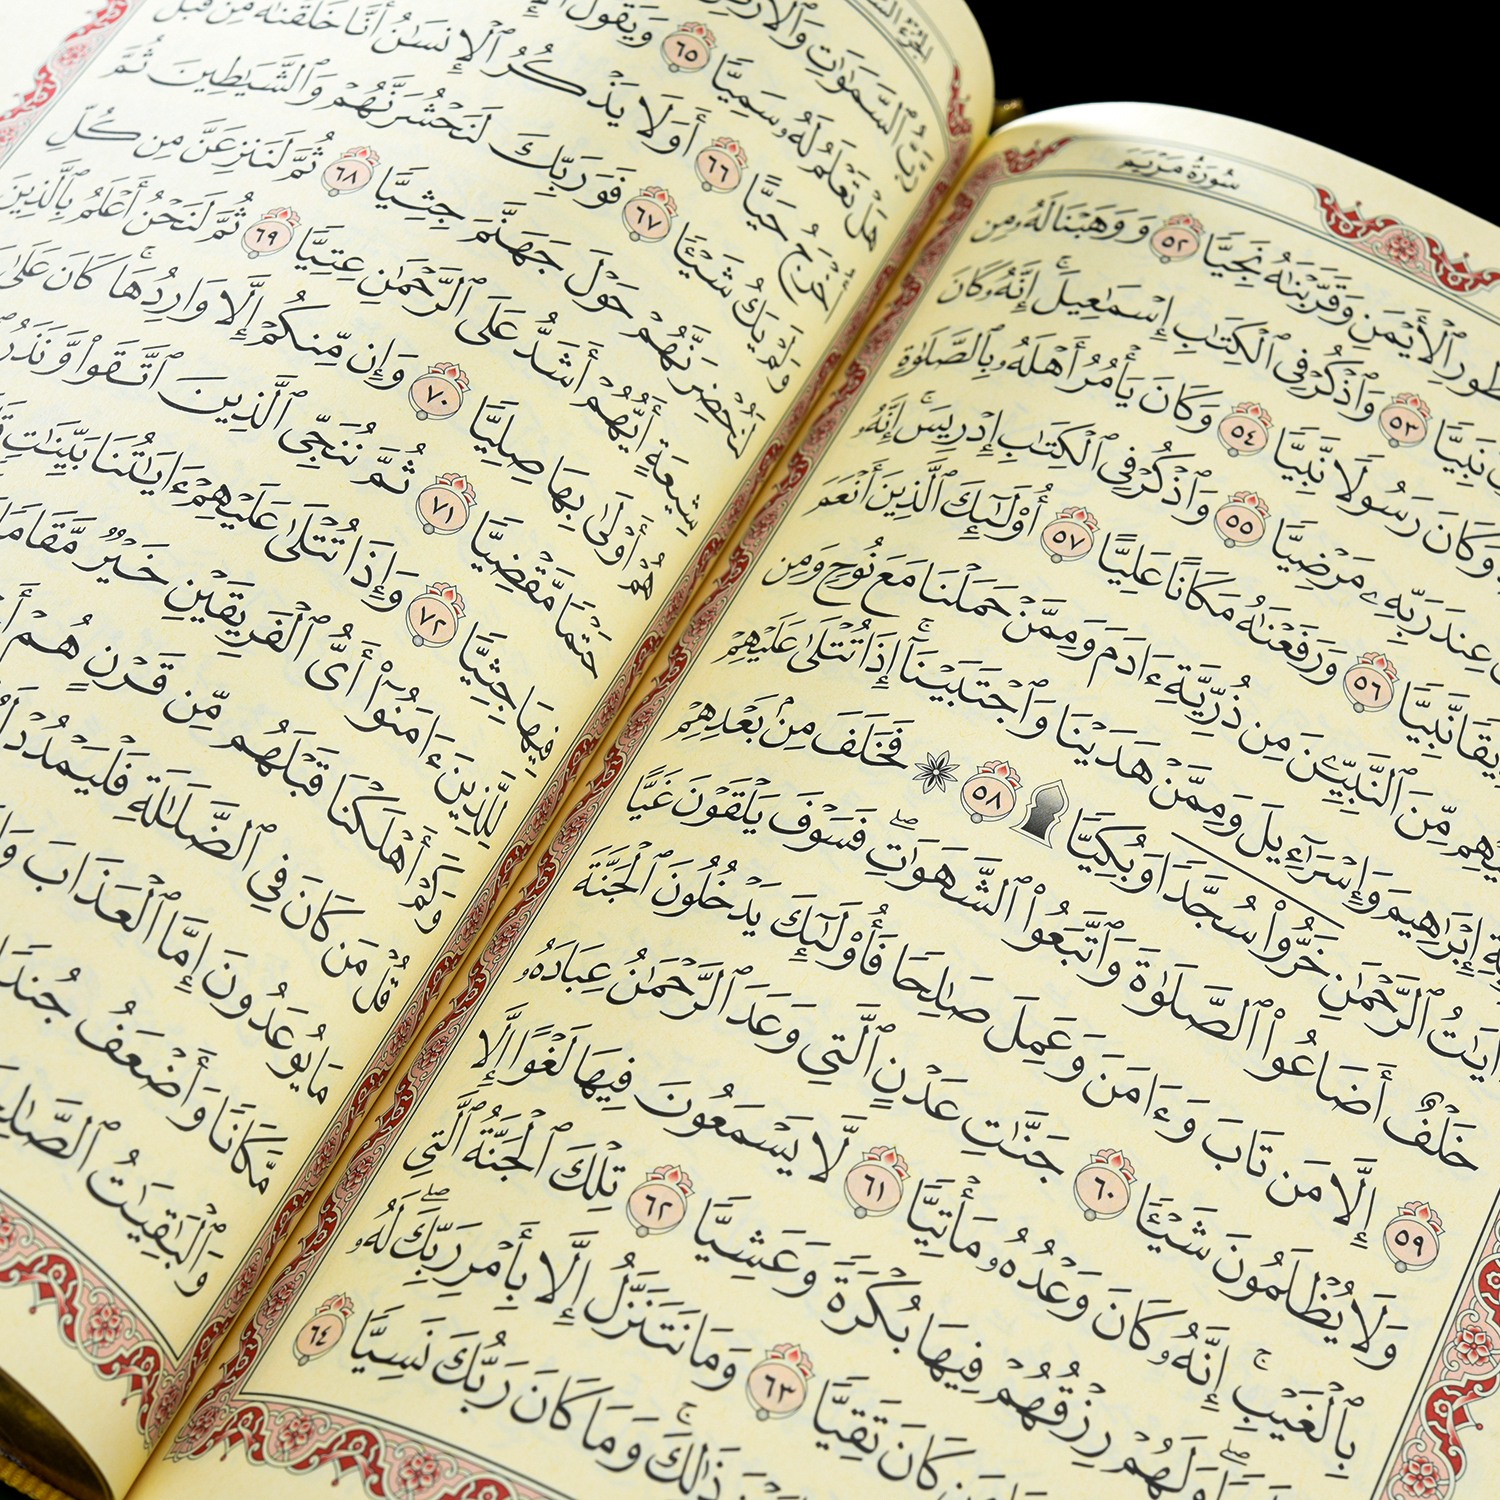 سُورَةُ مَرْيَمَ
ٱلْأَيْمَنِ وَقَرَّبْنَٰهُ نَجِيًّا ٥٢ وَوَهَبْنَا لَهُۥ مِن
نَبِيًّا ٥٣ وَٱذْكُرْ فِي ٱلْكِتَٰبِ إِسْمَٰعِيلَۚ إِنَّهُۥ كَانَ
وَكَانَ رَسُولًا نَّبِيًّا ٥٤ وَكَانَ يَأْمُرُ أَهْلَهُۥ بِٱلصَّلَوٰةِ
عِندَ رَبِّهِۦ مَرْضِيًّا ٥٥ وَٱذْكُرْ فِي ٱلْكِتَٰبِ إِدْرِيسَۚ إِنَّهُۥ
نَّبِيًّا ٥٦ وَرَفَعْنَٰهُ مَكَانًا عَلِيًّا ٥٧ أُوْلَٰٓئِكَ ٱلَّذِينَ أَنْعَمَ
مِّنَ ٱلنَّبِيِّـۧنَ مِن ذُرِّيَّةِ ءَادَمَ وَمِمَّنْ حَمَلْنَا مَعَ نُوحٍ وَمِن
إِبْرَٰهِيمَ وَإِسْرَٰٓءِيلَ وَمِمَّنْ هَدَيْنَا وَٱجْتَبَيْنَآۚ إِذَا تُتْلَىٰ عَلَيْهِمْ
ءَايَٰتُ ٱلرَّحْمَٰنِ خَرُّواْ سُجَّدًا وَبُكِيًّا۩ ٥٨ ۞ فَخَلَفَ مِنۢ بَعْدِهِمْ
خَلْفٌ أَضَاعُواْ ٱلصَّلَوٰةَ وَٱتَّبَعُواْ ٱلشَّهَوَٰتِۖ فَسَوْفَ يَلْقَوْنَ غَيًّا
٥٩ إِلَّا مَن تَابَ وَءَامَنَ وَعَمِلَ صَٰلِحًا فَأُوْلَٰٓئِكَ يَدْخُلُونَ ٱلْجَنَّةَ
وَلَا يُظْلَمُونَ شَيْـًٔا ٦٠ جَنَّٰتِ عَدْنٍ ٱلَّتِي وَعَدَ ٱلرَّحْمَٰنُ عِبَادَهُۥ
بِٱلْغَيْبِۚ إِنَّهُۥ كَانَ وَعْدُهُۥ مَأْتِيًّا ٦١ لَّا يَسْمَعُونَ فِيهَا لَغْوًا إِلَّا
وَلَهُمْ رِزْقُهُمْ فِيهَا بُكْرَةً وَعَشِيًّا ٦٢ تِلْكَ ٱلْجَنَّةُ ٱلَّتِي
كَانَ تَقِيًّا ٦٣ وَمَا نَتَنَزَّلُ إِلَّا بِأَمْرِ رَبِّكَۖ لَهُۥ
ذَٰلِكَۚ وَمَا كَانَ رَبُّكَ نَسِيًّا ٦٤
ٱلسَّمَٰوَٰتِ
هَلْ تَعْلَمُ لَهُۥ سَمِيًّا ٦٥ وَيَقُولُ
أُخْرَجُ حَيًّا ٦٦ أَوَلَا يَذْكُرُ ٱلْإِنسَٰنُ أَنَّا خَلَقْنَٰهُ مِن قَبْلُ
وَلَمْ يَكُ شَيْـًٔا ٦٧ فَوَرَبِّكَ لَنَحْشُرَنَّهُمْ وَٱلشَّيَٰطِينَ ثُمَّ
لَنُحْضِرَنَّهُمْ حَوْلَ جَهَنَّمَ جِثِيًّا ٦٨ ثُمَّ لَنَنزِعَنَّ مِن كُلِّ
شِيعَةٍ أَيُّهُمْ أَشَدُّ عَلَى ٱلرَّحْمَٰنِ عِتِيًّا ٦٩ ثُمَّ لَنَحْنُ أَعْلَمُ بِٱلَّذِينَ
هُمْ أَوْلَىٰ بِهَا صِلِيًّا ٧٠ وَإِن مِّنكُمْ إِلَّا وَارِدُهَاۚ كَانَ عَلَىٰ
حَتْمًا مَّقْضِيًّا ٧١ ثُمَّ نُنَجِّي ٱلَّذِينَ ٱتَّقَواْ وَّنَذَرُ
فِيهَا جِثِيًّا ٧٢ وَإِذَا تُتْلَىٰ عَلَيْهِمْ ءَايَٰتُنَا بَيِّنَٰتٍ
لِلَّذِينَ ءَامَنُوٓاْ أَيُّ ٱلْفَرِيقَيْنِ خَيْرٌ مَّقَامًا
وَكَمْ أَهْلَكْنَا قَبْلَهُم مِّن قَرْنٍ هُمْ
قُلْ مَن كَانَ فِي ٱلضَّلَٰلَةِ فَلْيَمْدُدْ
مَا يُوعَدُونَ إِمَّا ٱلْعَذَابَ
مَّكَانًا وَأَضْعَفُ جُندًا
وَٱلْبَٰقِيَٰتُ